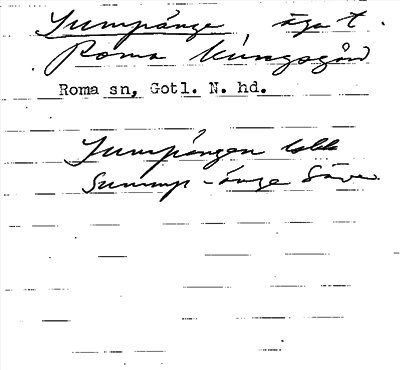 Sumpänge, äga t.
Roma Kungsgård
Roma sn, Gotl. N. hd.
Sumpängen
Summp-änge Säve